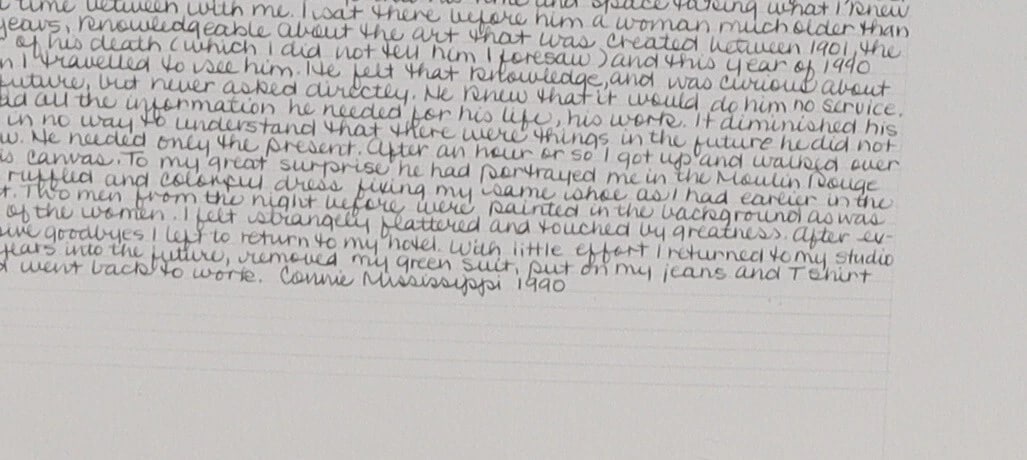 time and space taking what I knew
time between with me. I sat there before him a woman much older than
years, knowledgeable about the art that was created between 1901, the
of his death (which I did not tell him I foresaw) and this year of 1990
n I travelled to see him. He felt that knowledge, and was curious about
future, but never asked directly. He knew that it would do him no service.
ad all the information he needed for his life, his work. It diminished his
in no way to understand that there were things in the future he did not
w. He needed only the present. After an hour or so I got up and walked over
is canvas. To my great surprise he had portrayed me in the Moulin Rouge
ruffled and colorful dress fixing my same shoe as I had earlier in the
t. Two men from the night before were painted in the background as was
of the women. I felt strangely flattered and touched by greatness. After ev-
sive goodbyes I left to return to my hotel. With little effort I returned to my studio
years into the future, removed my green suit, put on my jeans and T shirt
d went back to work. Connie Mississippi 1990